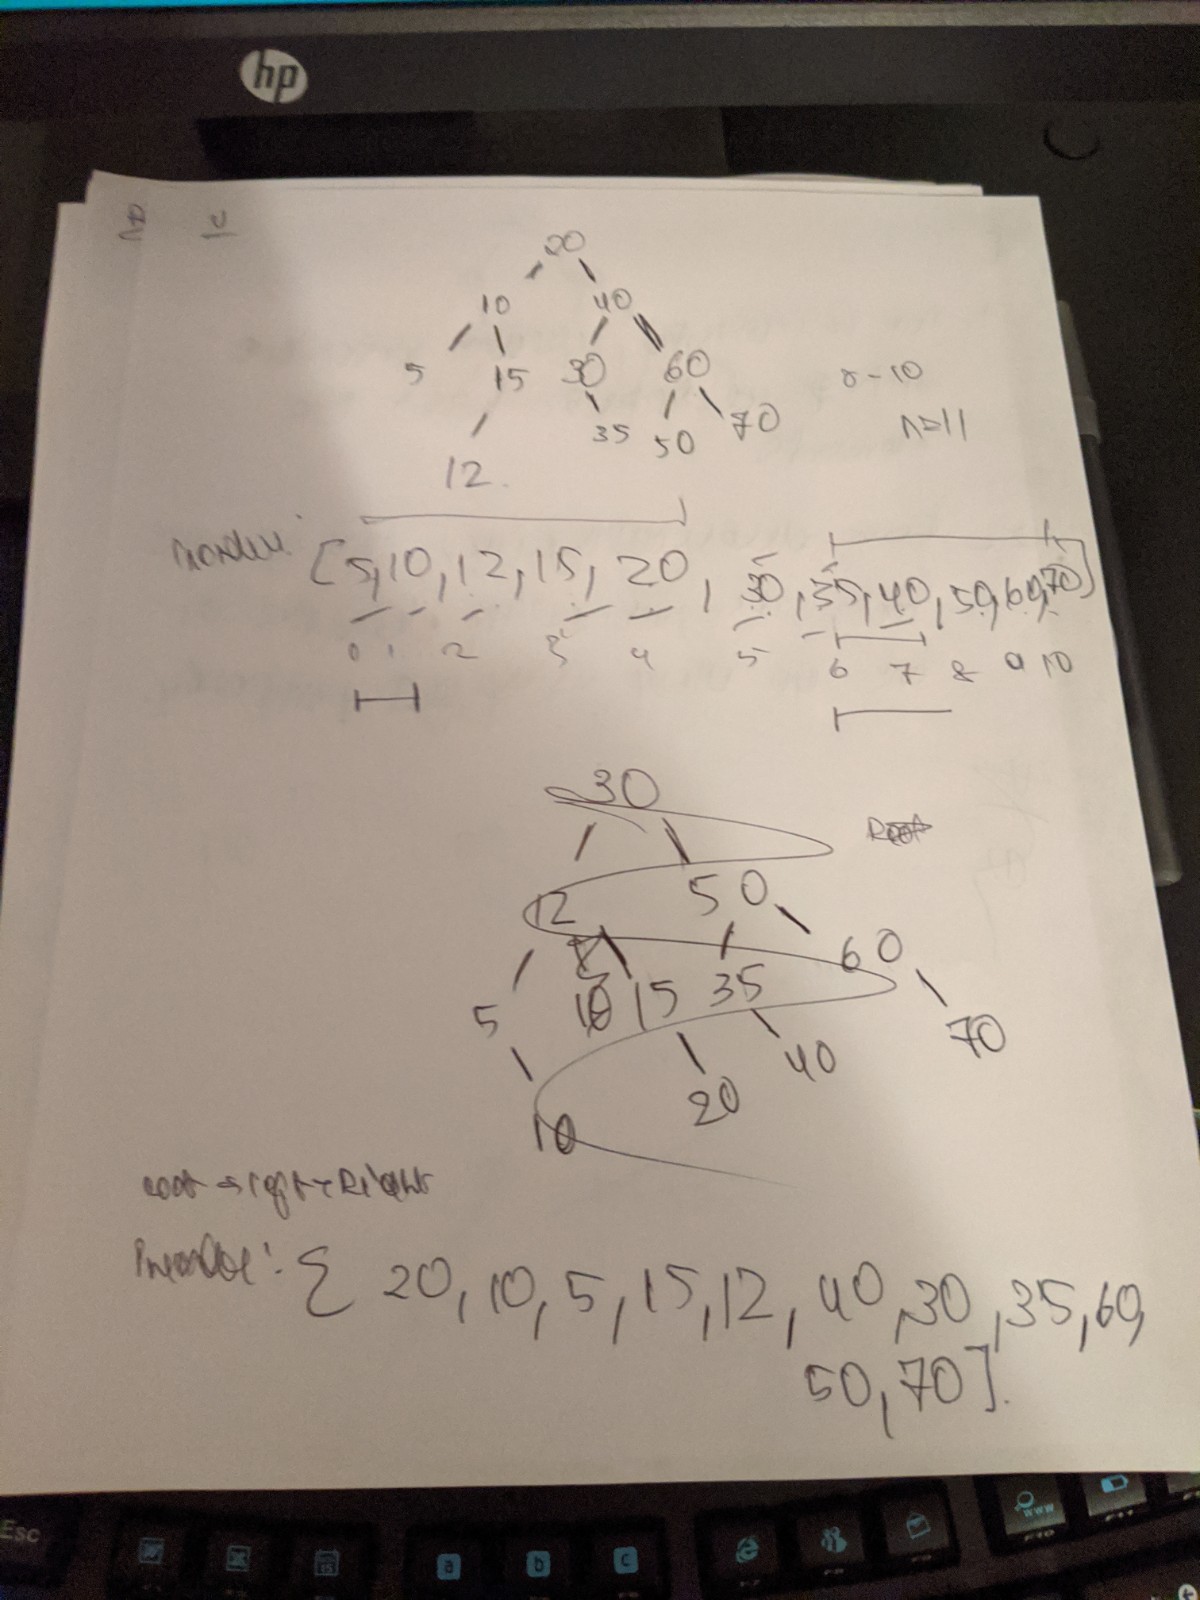 hp
20
10 40
5 15 30 60
35 50 70
12
0-10
n=11
Inorder: [5,10,12,15, 20, 30,35,40,50,60,70]
0 1 2 3 4 5 6 7 8 9 10
30
Root
12 50
60
5 10 15 35
70
40
20
10
root → left → Right
Preorder: { 20,10,5,15,12,40,30,35,60,
50,70].
Esc
a b c
www
F10
F11